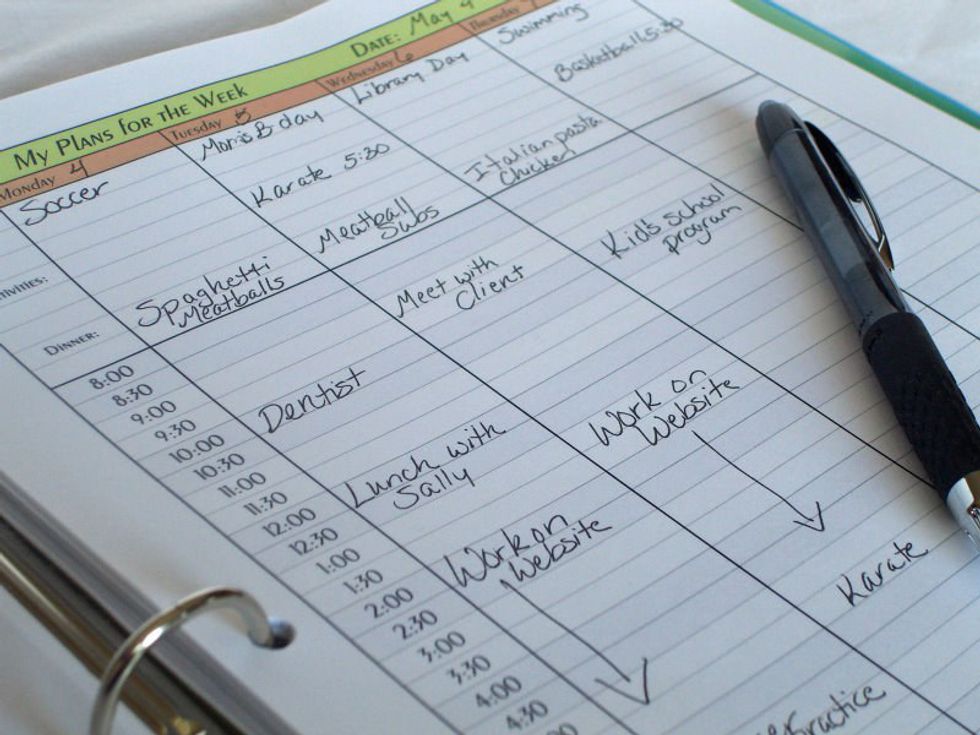 My Plans for the Week
Date: May 4
Monday 4
Tuesday 5
Wednesday 6
Thursday 7
Soccer
Mom's B day
Library Day
Swimming
Karate 5:30
Basketball 5:30
Dinner:
Spaghetti
Meatballs
Meatball
Subs
Italian pasta
Chicken
8:00
8:30
9:00
9:30
10:00
10:30
11:00
11:30
12:00
12:30
1:00
1:30
2:00
2:30
3:00
3:30
4:00
4:30
Dentist
Lunch with
Sally
Work on
Website
Meet with
Client
Work on
Website
Kid's school
program
Karate
Practice